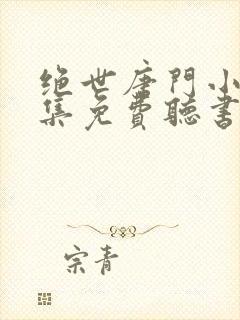 绝世唐門小
集免費聽書
宗青